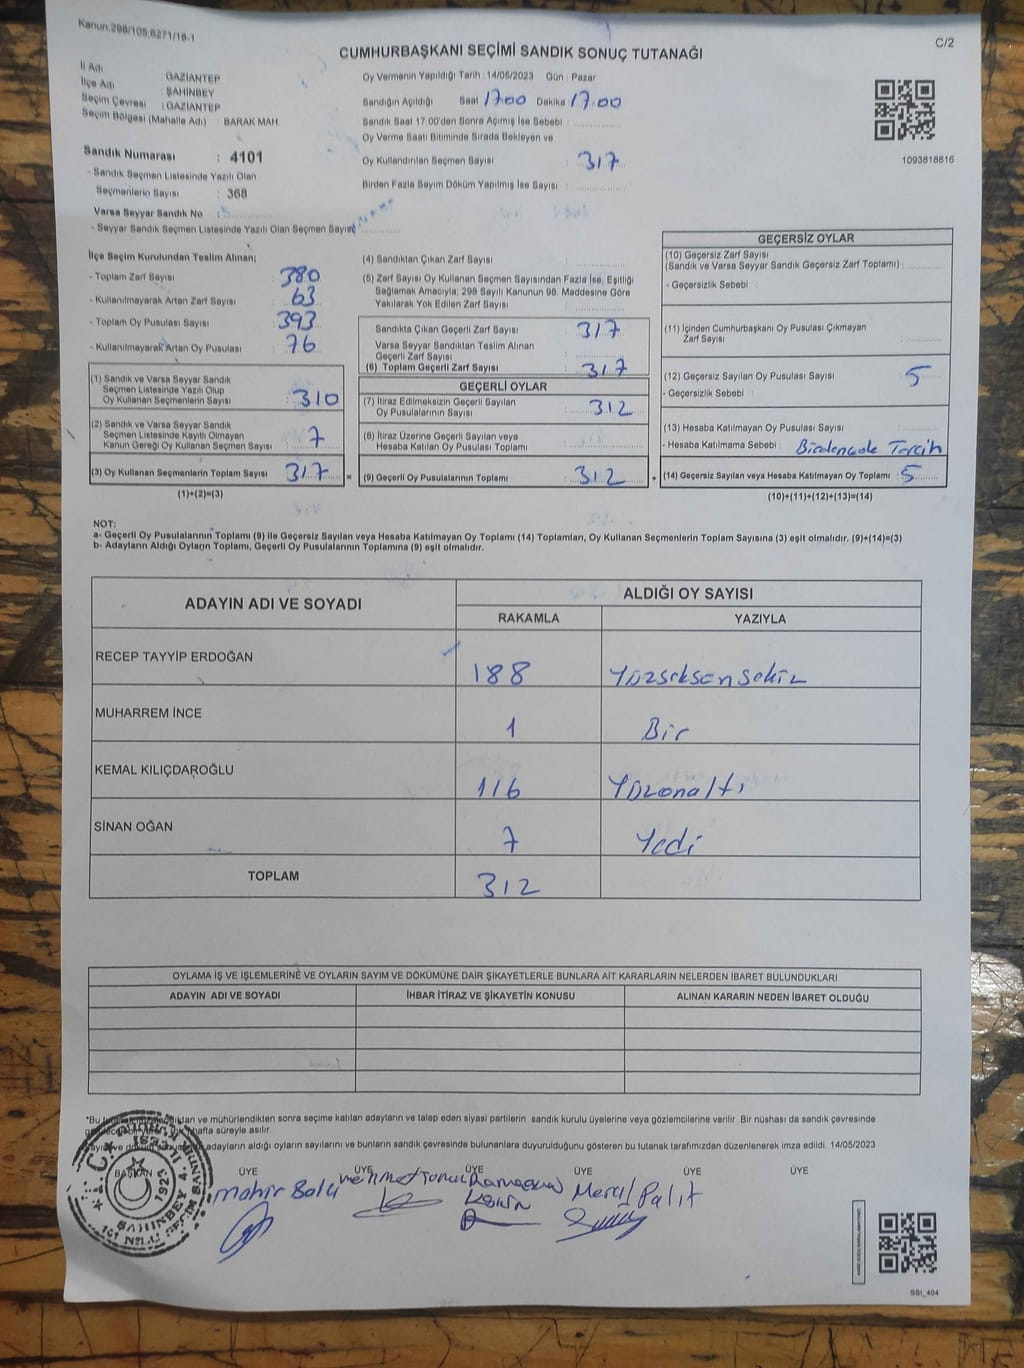 Kanun:298/105,6271/18-1
C/2
CUMHURBAŞKANI SEÇİMİ SANDIK SONUÇ TUTANAĞI
İl Adı : GAZİANTEP
İlçe Adı : ŞAHİNBEY
Seçim Çevresi : GAZİANTEP
Seçim Bölgesi (Mahalle Adı) : BARAK MAH.
Sandık Numarası : 4101
- Sandık Seçmen Listesinde Yazılı Olan
Seçmenlerin Sayısı : 368
Varsa Seyyar Sandık No :
- Seyyar Sandık Seçmen Listesinde Yazılı Olan Seçmen Sayısı
Oy Vermenin Yapıldığı Tarih :14/05/2023 Gün : Pazar
Sandığın Açıldığı Saat 17.00 Dakika 17.00
Sandık Saat 17.00'den Sonra Açımış İse Sebebi :
Oy Verme Saati Bitiminde Sırada Bekleyen ve
Oy Kullandırılan Seçmen Sayısı : 317
Birden Fazla Sayım Döküm Yapılmış İse Sayısı :
1093818816
İlçe Seçim Kurulundan Teslim Alınan;
- Toplam Zarf Sayısı : 380
- Kullanılmayarak Artan Zarf Sayısı : 63
- Toplam Oy Pusulası Sayısı : 393
- Kullanılmayarak Artan Oy Pusulası : 76
(1) Sandık ve Varsa Seyyar Sandık
Seçmen Listesinde Yazılı Olup
Oy Kullanan Seçmenlerin Sayısı : 310
(2) Sandık ve Varsa Seyyar Sandık
Seçmen Listesinde Kayıtlı Olmayan
Kanun Gereği Oy Kullanan Seçmen Sayısı : 7
(3) Oy Kullanan Seçmenlerin Toplam Sayısı : 317
(1)+(2)=(3)
(4) Sandıktan Çıkan Zarf Sayısı :
(5) Zarf Sayısı Oy Kullanan Seçmen Sayısından Fazla İse, Eşitliği
Sağlamak Amacıyla; 298 Sayılı Kanunun 98. Maddesine Göre
Yakılarak Yok Edilen Zarf Sayısı :
Sandıkta Çıkan Geçerli Zarf Sayısı : 317
Varsa Seyyar Sandıktan Teslim Alınan
Geçerli Zarf Sayısı :
(6) Toplam Geçerli Zarf Sayısı : 317
GEÇERLİ OYLAR
(7) İtiraz Edilmeksizin Geçerli Sayılan
Oy Pusulalarının Sayısı : 312
(8) İtiraz Üzerine Geçerli Sayılan veya
Hesaba Katılan Oy Pusulaları Toplamı :
= (9) Geçerli Oy Pusulalarının Toplamı : 312 +
GEÇERSİZ OYLAR
(10) Geçersiz Zarf Sayısı
(Sandık ve Varsa Seyyar Sandık Geçersiz Zarf Toplamı) :
- Geçersizlik Sebebi :
(11) İçinden Cumhurbaşkanı Oy Pusulası Çıkmayan
Zarf Sayısı :
(12) Geçersiz Sayılan Oy Pusulası Sayısı : 5
- Geçersizlik Sebebi :
(13) Hesaba Katılmayan Oy Pusulası Sayısı :
- Hesaba Katılmama Sebebi : Birdençok Tercih
(14) Geçersiz Sayılan veya Hesaba Katılmayan Oy Toplamı : 5
(10)+(11)+(12)+(13)=(14)
NOT:
a- Geçerli Oy Pusulalarının Toplamı (9) ile Geçersiz Sayılan veya Hesaba Katılmayan Oy Toplamı (14) Toplamları, Oy Kullanan Seçmenlerin Toplam Sayısına (3) eşit olmalıdır. (9)+(14)=(3)
b- Adayların Aldığı Oyların Toplamı, Geçerli Oy Pusulalarının Toplamına (9) eşit olmalıdır.
ADAYIN ADI VE SOYADI ALDIĞI OY SAYISI
RAKAMLA YAZIYLA
RECEP TAYYİP ERDOĞAN 188 Yüzseksensekiz
MUHARREM İNCE 1 Bir
KEMAL KILIÇDAROĞLU 116 Yüzonaltı
SİNAN OĞAN 7 Yedi
TOPLAM 312
OYLAMA İŞ VE İŞLEMLERİNE VE OYLARIN SAYIM VE DÖKÜMÜNE DAİR ŞİKAYETLERLE BUNLARA AİT KARARLARIN NELERDEN İBARET BULUNDUKLARI
ADAYIN ADI VE SOYADI İHBAR İTİRAZ VE ŞİKAYETİN KONUSU ALINAN KARARIN NEDEN İBARET OLDUĞU
*Bu ve mühürlendikten sonra seçime katılan adayların ve talep eden siyasi partilerin sandık kurulu üyelerine veya gözlemcilerine verilir. Bir nüshası da sandık çevresinde
hafta süreyle asılır.
adayların aldığı oyların sayılarını ve bunların sandık çevresinde bulunanlara duyurulduğunu gösteren bu tutanak tarafımızdan düzenlenerek imza edildi. 14/05/2023
BAŞKAN ÜYE ÜYE ÜYE ÜYE ÜYE ÜYE
mahir Mehmet Ramazan Palit
T.C. ŞAHİNBEY 4. İLÇE SEÇİM
1923
SSI_404